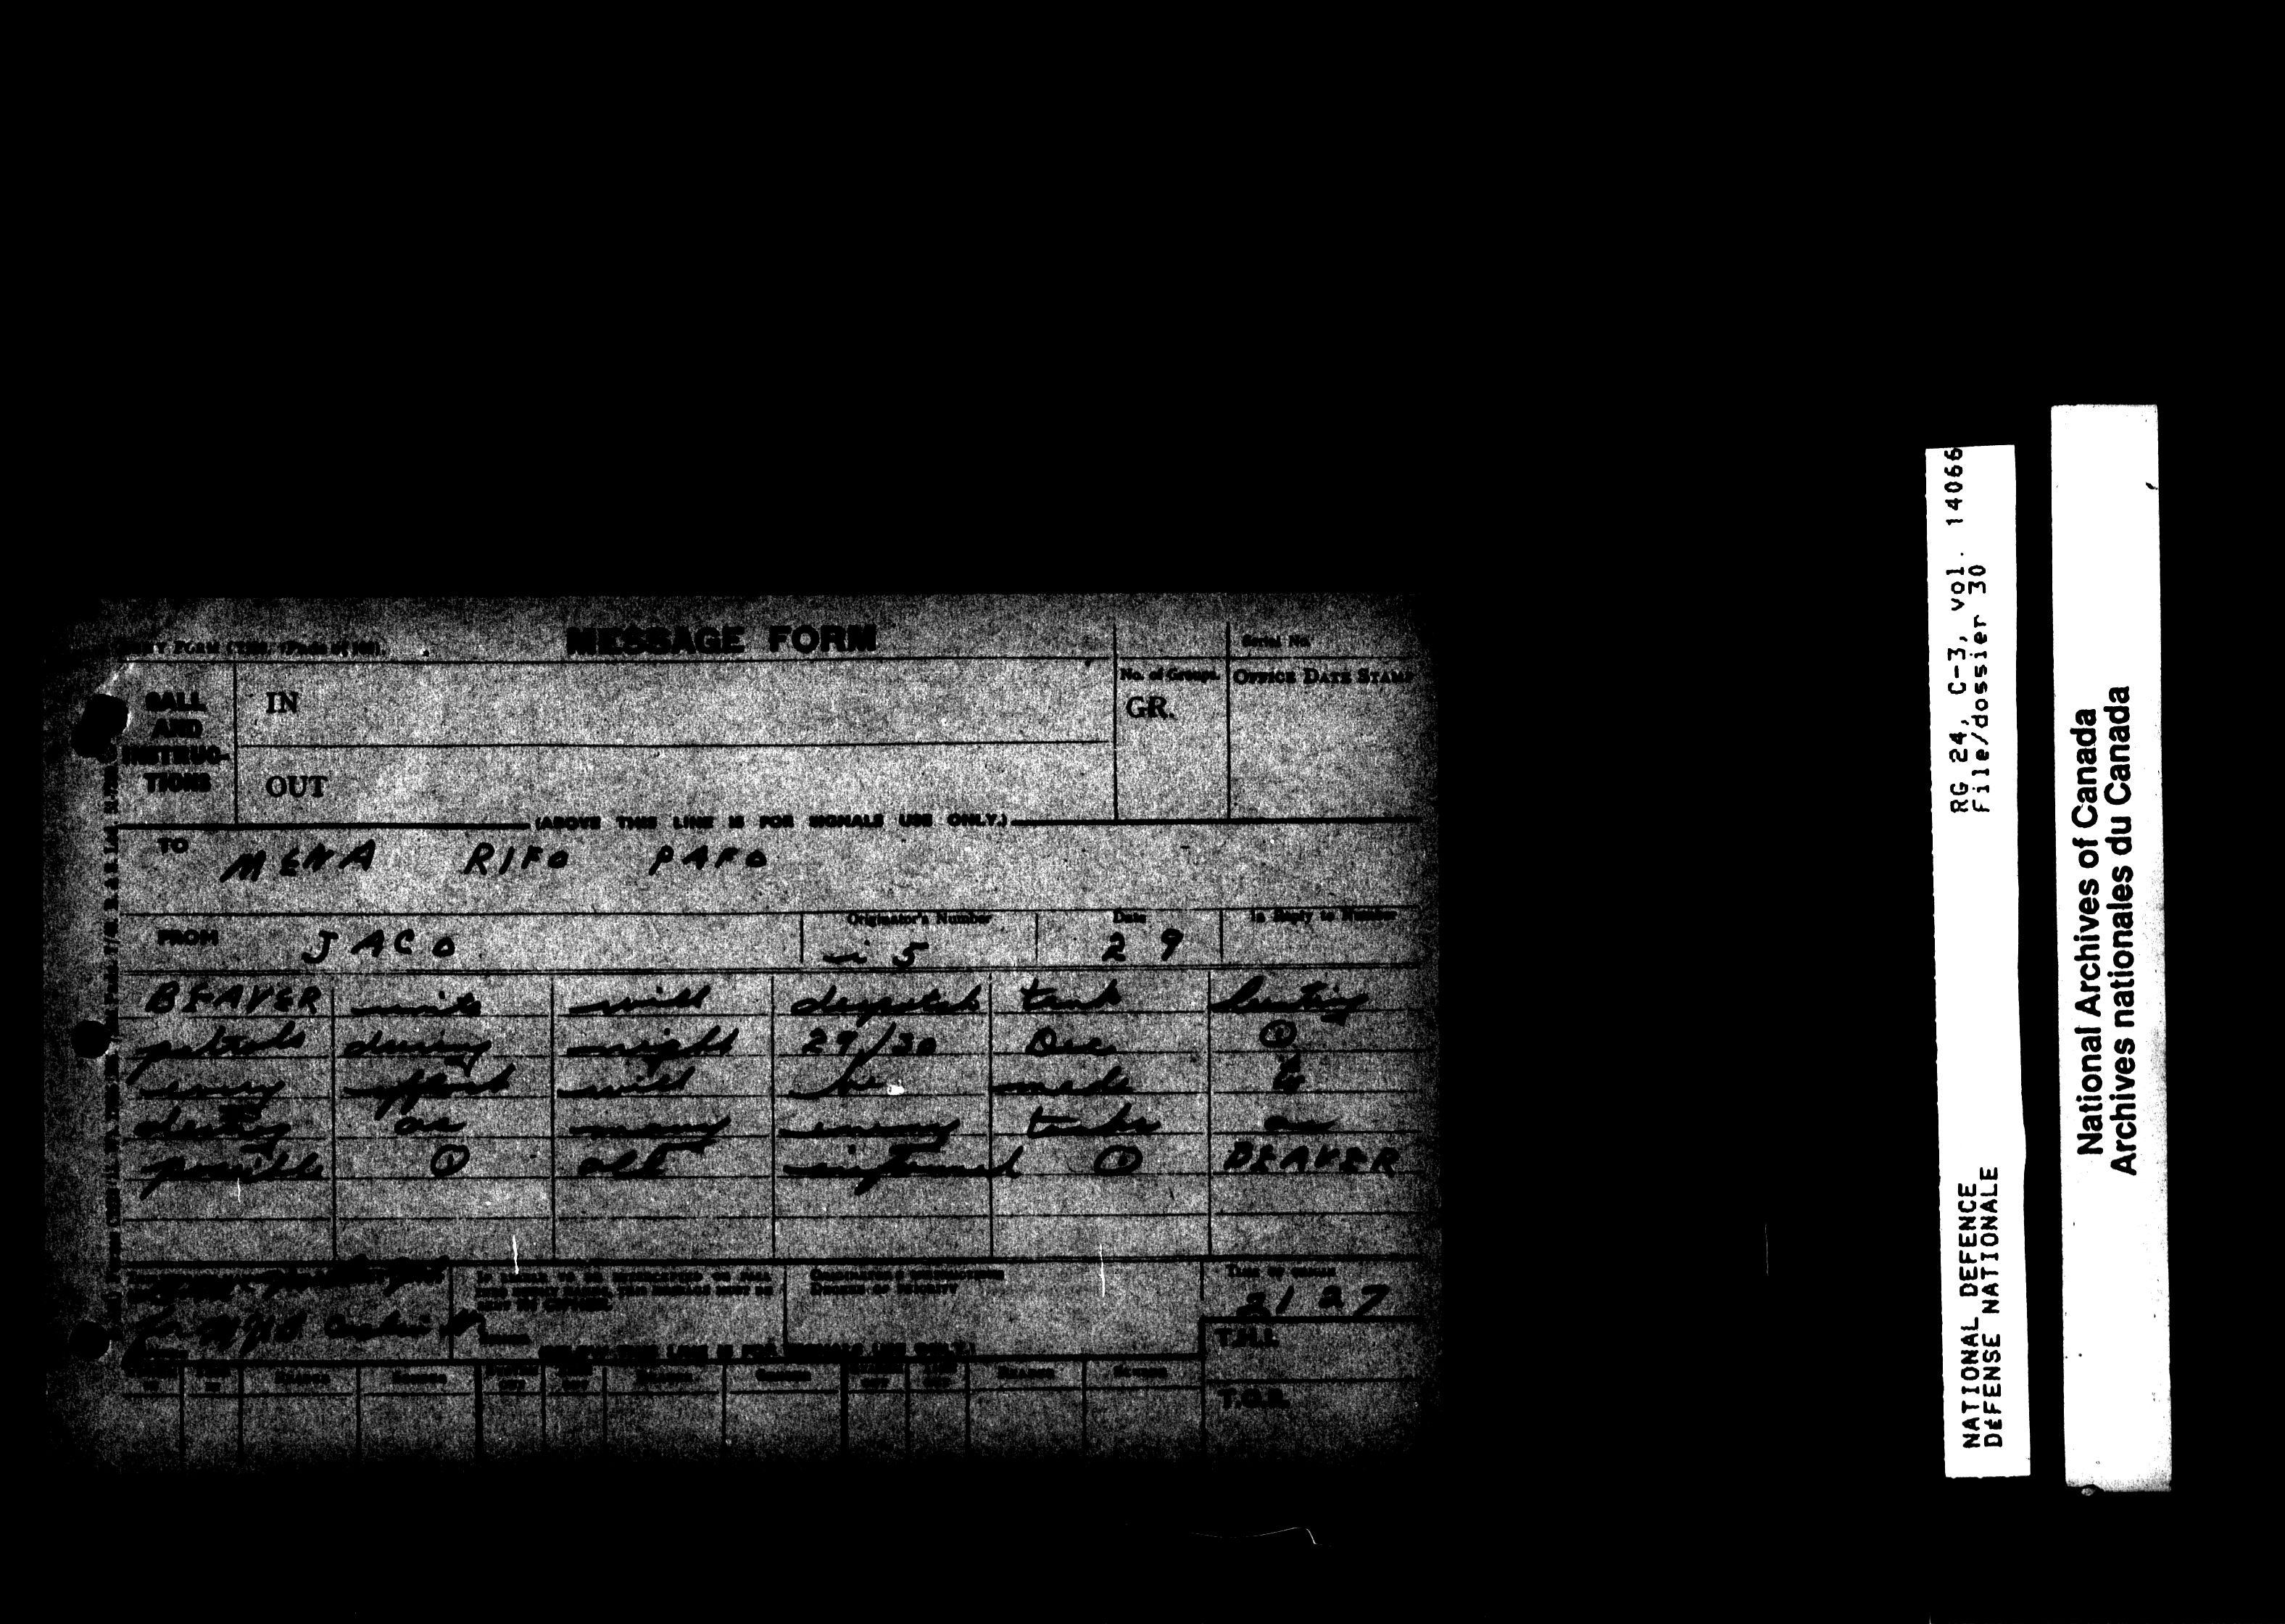 MESSAGE FORM
Serial No.
CALL AND INSTRUC-TIONS
IN
No. of Groups.
GR.
OFFICE DATE STAMP
OUT
(ABOVE THIS LINE IS FOR SIGNALS USE ONLY.)
TO MENA RIFO PAFO
FROM JACO
Originator's Number
i 5
Date
29
In Reply to Number
BEAVER units will despatch tank hunting
patrols during night 29/30 Dec ①
every effort will be made to
destroy as many enemy tanks as
possible ① all informed ① BEAVER
ORIGINATOR'S INSTRUCTIONS
DEGREE OF PRIORITY
TIME OF ORIGIN
2127
T.H.I.
T.O.R.
RG 24, C-3, vol. 14066
File/dossier 30
NATIONAL DEFENCE
DÉFENSE NATIONALE
National Archives of Canada
Archives nationales du Canada